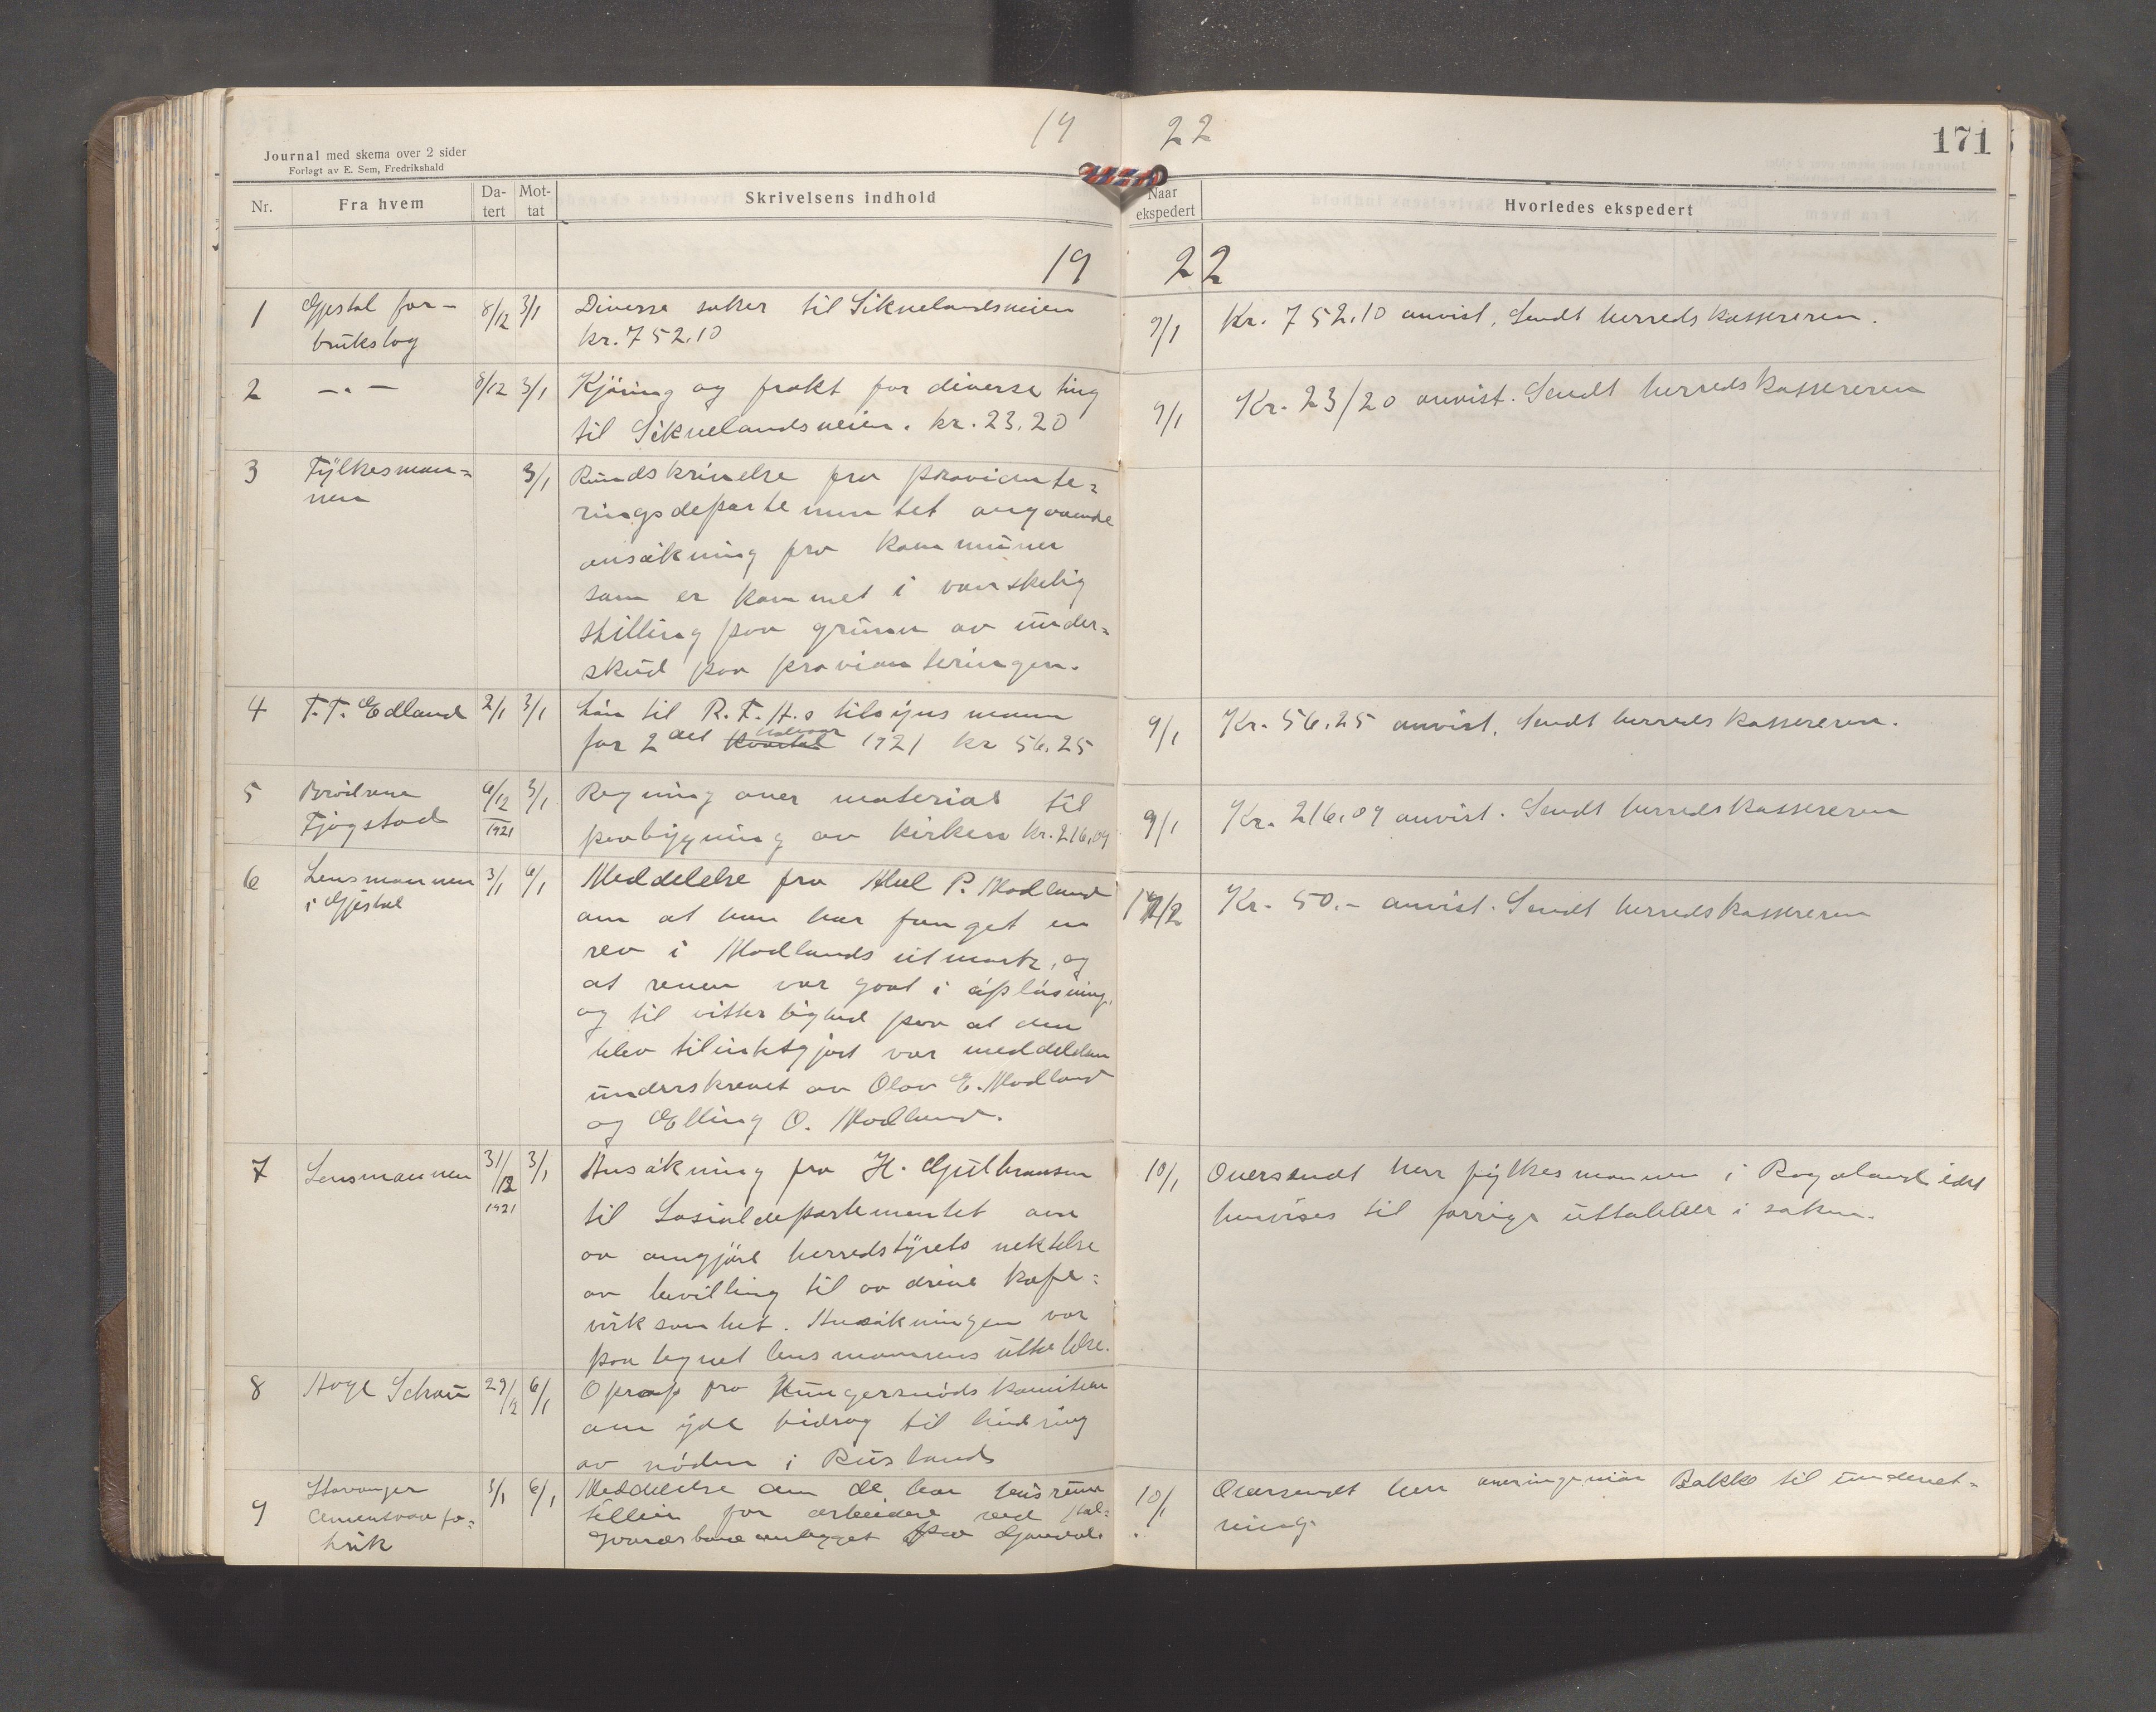 19 22
171
Journal med skema over 2 sider
Forlagt av E. Sem, Fredrikshald
Nr. Fra hvem Da-tert Mot-tat Skrivelsens indhold Naar ekspedert Hvorledes ekspedert
19 22
1 Gjestal for- 8/12 3/1 Diverse saker til Sikvelandsveien 9/1 Kr. 752.10 anvist. Sendt herredskassereren.
brukslag kr. 752.10
2 —„— 8/12 3/1 Kjöring og frakt for diverse ting 9/1 Kr. 23/20 anvist. Sendt herredskassereren
til Sikvelandsveien. kr. 23.20
3 Fylkesman= 3/1 Rundskrivelse fra proviante=
nen ringsdepartementet angaaende
ansökning fra kommuner
som er kommet i vanskelig
stilling paa grunn av under=
skud paa provianteringen.
4 T. T. Edland 2/1 3/1 Lön til R. F. H.s tilsynsmann 9/1 Kr. 56.25 anvist. Sendt herredskassereren.
for 2det kvartal halvaar 1921 kr 56.25
5 Brödrene 6/12 1921 3/1 Regning over material til 9/1 Kr. 216.09 anvist. Sendt herredskassereren
Fjogstad paabygning av kirken kr. 216,09
6 Lensmannen 3/1 6/1 Meddelelse fra P. Modland /2 Kr. 50.- anvist. Sendt herredskassereren
i Gjestal om at han har fanget en
rev i Modlands utmark, og
at reven var gaat i opløsning,
og til vitterlighed paa at den
blev tilintetgjort var meddelelsen
underskrevet av Olav E. Modland
og Elling O. Modland.
7 Lensmannen 31/12 1921 3/1 Ansökning fra H. Gulbransen 10/1 Oversendt herr fylkesmannen i Rogaland idet
til Sosialdepartementet om henvises til forrige uttalelser i saken.
aa omgjöre herredstyrets nektelse
av bevilling til aa drive kafe=
virksomhet. Ansökningen var
paategnet lensmannens uttalelse.
8 Aage Schou 29/12 6/1 Oprop fra Hungersnödskomiteen
om yde bidrag til lindring
av nöden i Rusland
9 Stavanger 3/1 6/1 Meddelelse om de har husrum 10/1 Oversendt herr overingeniör Bakke til underret=
Cementvarefa= tilleie for arbeidere ved ning.
brik anlegget paa